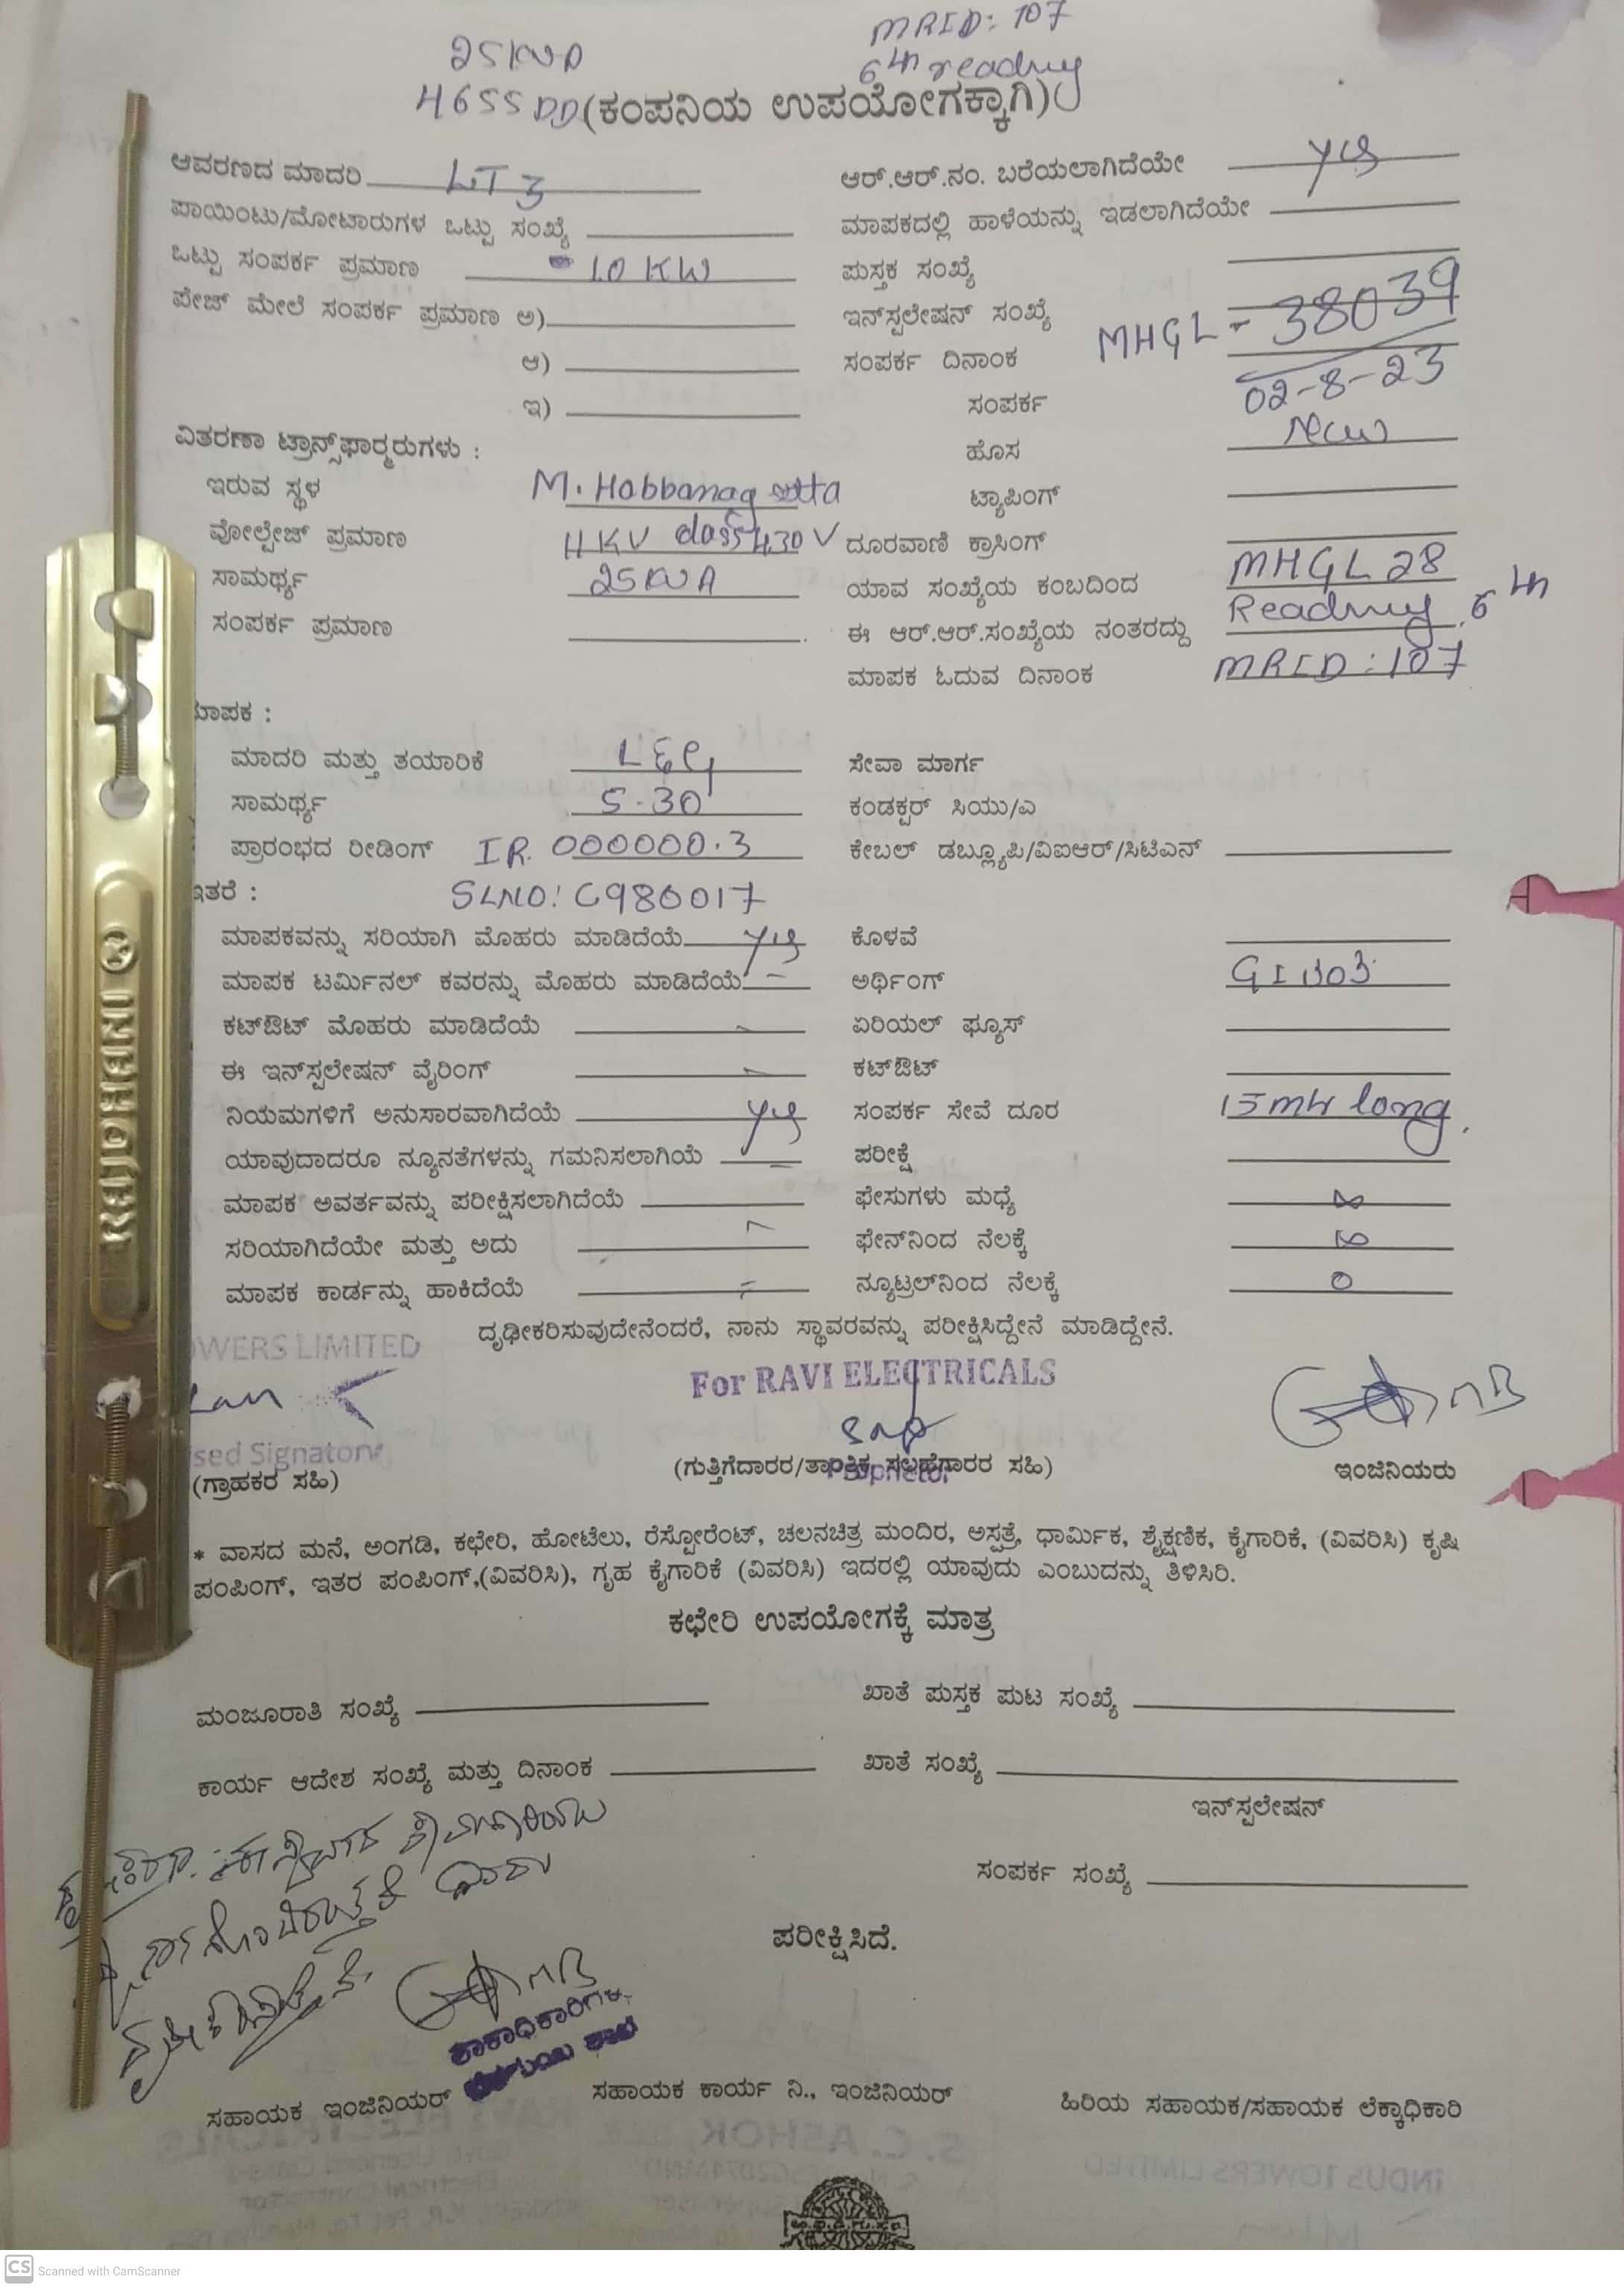 MRID: 107
25KVA
6th reading
4655 DD (ಕಂಪನಿಯ ಉಪಯೋಗಕ್ಕಾಗಿ)
ಆವರಣದ ಮಾದರಿ LT 3
ಆರ್.ಆರ್.ನಂ. ಬರೆಯಲಾಗಿದೆಯೇ yes
ಪಾಯಿಂಟು/ಮೋಟಾರುಗಳ ಒಟ್ಟು ಸಂಖ್ಯೆ
ಮಾಪಕದಲ್ಲಿ ಹಾಳೆಯನ್ನು ಇಡಲಾಗಿದೆಯೇ
ಒಟ್ಟು ಸಂಪರ್ಕ ಪ್ರಮಾಣ 10 KW
ಪುಸ್ತಕ ಸಂಖ್ಯೆ
ಪೇಜ್ ಮೇಲೆ ಸಂಪರ್ಕ ಪ್ರಮಾಣ ಅ)
ಇನ್‌ಸ್ಪಲೇಷನ್ ಸಂಖ್ಯೆ MHGL - 38039
ಆ)
ಸಂಪರ್ಕ ದಿನಾಂಕ 02-8-23
ಇ)
ಸಂಪರ್ಕ
ವಿತರಣಾ ಟ್ರಾನ್ಸ್‌ಫಾರ್ಮರುಗಳು :
ಹೊಸ New
ಇರುವ ಸ್ಥಳ M. Habbanag
ಟ್ಯಾಪಿಂಗ್
ವೋಲ್ಟೇಜ್ ಪ್ರಮಾಣ 11 KV class 430 V
ದೂರವಾಣಿ ಕ್ರಾಸಿಂಗ್
ಸಾಮರ್ಥ್ಯ 25KVA
ಯಾವ ಸಂಖ್ಯೆಯ ಕಂಬದಿಂದ MHGL 28
ಸಂಪರ್ಕ ಪ್ರಮಾಣ
ಈ ಆರ್.ಆರ್.ಸಂಖ್ಯೆಯ ನಂತರದ್ದು Reading 6th
ಮಾಪಕ ಓದುವ ದಿನಾಂಕ MRID: 107
ಮಾಪಕ :
ಮಾದರಿ ಮತ್ತು ತಯಾರಿಕೆ L&G
ಸೇವಾ ಮಾರ್ಗ
ಸಾಮರ್ಥ್ಯ 5-30
ಕಂಡಕ್ಟರ್ ಸಿಯು/ಎ
ಪ್ರಾರಂಭದ ರೀಡಿಂಗ್ IR. 000000.3
ಕೇಬಲ್ ಡಬ್ಲ್ಯೂಪಿ/ವಿಐಆರ್/ಸಿಟಿಎನ್
ಇತರೆ : SLNO: C980017
ಮಾಪಕವನ್ನು ಸರಿಯಾಗಿ ಮೊಹರು ಮಾಡಿದೆಯೆ yes
ಕೊಳವೆ
ಮಾಪಕ ಟರ್ಮಿನಲ್ ಕವರನ್ನು ಮೊಹರು ಮಾಡಿದೆಯೆ
ಅರ್ಥಿಂಗ್
ಕಟ್‌ಔಟ್ ಮೊಹರು ಮಾಡಿದೆಯೆ
ಏರಿಯಲ್ ಫ್ಯೂಸ್
ಈ ಇನ್‌ಸ್ಪಲೇಷನ್ ವೈರಿಂಗ್
ಕಟ್‌ಔಟ್
ನಿಯಮಗಳಿಗೆ ಅನುಸಾರವಾಗಿದೆಯೆ yes
ಸಂಪರ್ಕ ಸೇವೆ ದೂರ 15 mtr long.
ಯಾವುದಾದರೂ ನ್ಯೂನತೆಗಳನ್ನು ಗಮನಿಸಲಾಗಿಯೆ
ಪರೀಕ್ಷೆ
ಮಾಪಕ ಅವರ್ತವನ್ನು ಪರೀಕ್ಷಿಸಲಾಗಿದೆಯೆ
ಫೇಸುಗಳು ಮಧ್ಯೆ ∞
ಸರಿಯಾಗಿದೆಯೇ ಮತ್ತು ಅದು
ಫೇಸ್‌ನಿಂದ ನೆಲಕ್ಕೆ ∞
ಮಾಪಕ ಕಾರ್ಡನ್ನು ಹಾಕಿದೆಯೆ
ನ್ಯೂಟ್ರಲ್‌ನಿಂದ ನೆಲಕ್ಕೆ 0
ದೃಢೀಕರಿಸುವುದೇನೆಂದರೆ, ನಾನು ಸ್ಥಾವರವನ್ನು ಪರೀಕ್ಷಿಸಿದ್ದೇನೆ ಮಾಡಿದ್ದೇನೆ.
OWERS LIMITED
For RAVI ELECTRICALS
ised Signatory
(ಗ್ರಾಹಕರ ಸಹಿ)
(ಗುತ್ತಿಗೆದಾರರ/ತಾಂತ್ರಿಕ ಸಲಹೆಗಾರರ ಸಹಿ)
ಇಂಜಿನಿಯರು
* ವಾಸದ ಮನೆ, ಅಂಗಡಿ, ಕಛೇರಿ, ಹೋಟೆಲು, ರೆಸ್ಟೋರೆಂಟ್, ಚಲನಚಿತ್ರ ಮಂದಿರ, ಅಸ್ಪತ್ರೆ, ಧಾರ್ಮಿಕ, ಶೈಕ್ಷಣಿಕ, ಕೈಗಾರಿಕೆ, (ವಿವರಿಸಿ) ಕೃಷಿ
ಪಂಪಿಂಗ್, ಇತರ ಪಂಪಿಂಗ್,(ವಿವರಿಸಿ), ಗೃಹ ಕೈಗಾರಿಕೆ (ವಿವರಿಸಿ) ಇದರಲ್ಲಿ ಯಾವುದು ಎಂಬುದನ್ನು ತಿಳಿಸಿರಿ.
ಕಛೇರಿ ಉಪಯೋಗಕ್ಕೆ ಮಾತ್ರ
ಮಂಜೂರಾತಿ ಸಂಖ್ಯೆ
ಖಾತೆ ಪುಸ್ತಕ ಪುಟ ಸಂಖ್ಯೆ
ಕಾರ್ಯ ಆದೇಶ ಸಂಖ್ಯೆ ಮತ್ತು ದಿನಾಂಕ
ಖಾತೆ ಸಂಖ್ಯೆ
ಇನ್‌ಸ್ಪಲೇಷನ್
ಸಂಪರ್ಕ ಸಂಖ್ಯೆ
ಪರೀಕ್ಷಿಸಿದೆ.
ಶಾಕಾಧಿಕಾರಿಗಳು
ಸಹಾಯಕ ಇಂಜಿನಿಯರ್
ಸಹಾಯಕ ಕಾರ್ಯ ನಿ., ಇಂಜಿನಿಯರ್
ಹಿರಿಯ ಸಹಾಯಕ/ಸಹಾಯಕ ಲೆಕ್ಕಾಧಿಕಾರಿ
NEELGAGAN
CS Scanned with CamScanner